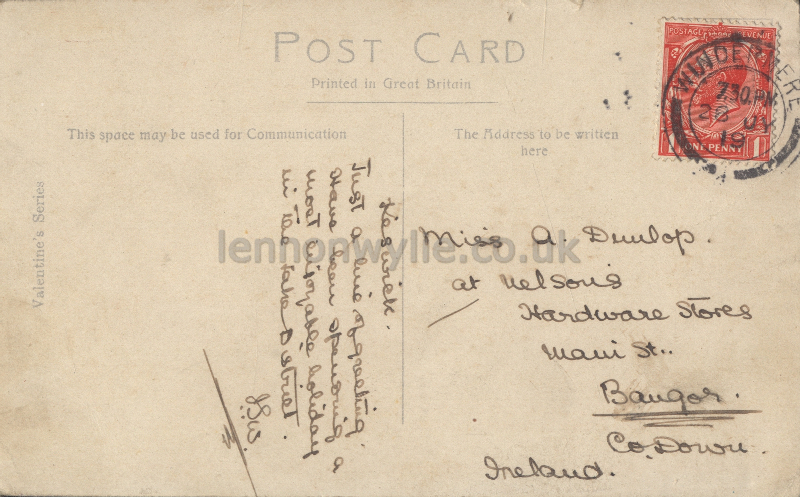 POST CARD
Printed in Great Britain
This space may be used for Communication
The Address to be written
here
Valentine's Series
POSTAGE REVENUE
ONE PENNY
WINDERMERE
7.30 PM
19
Keswick.
Just a line of greeting.
Have been spending a
most enjoyable holiday
in the Lake District.
J.S.W.
Miss A. Dunlop.
at Nelson's
Hardware Stores
Main St..
Bangor.
Co. Down.
Ireland.
lennonwylie.co.uk